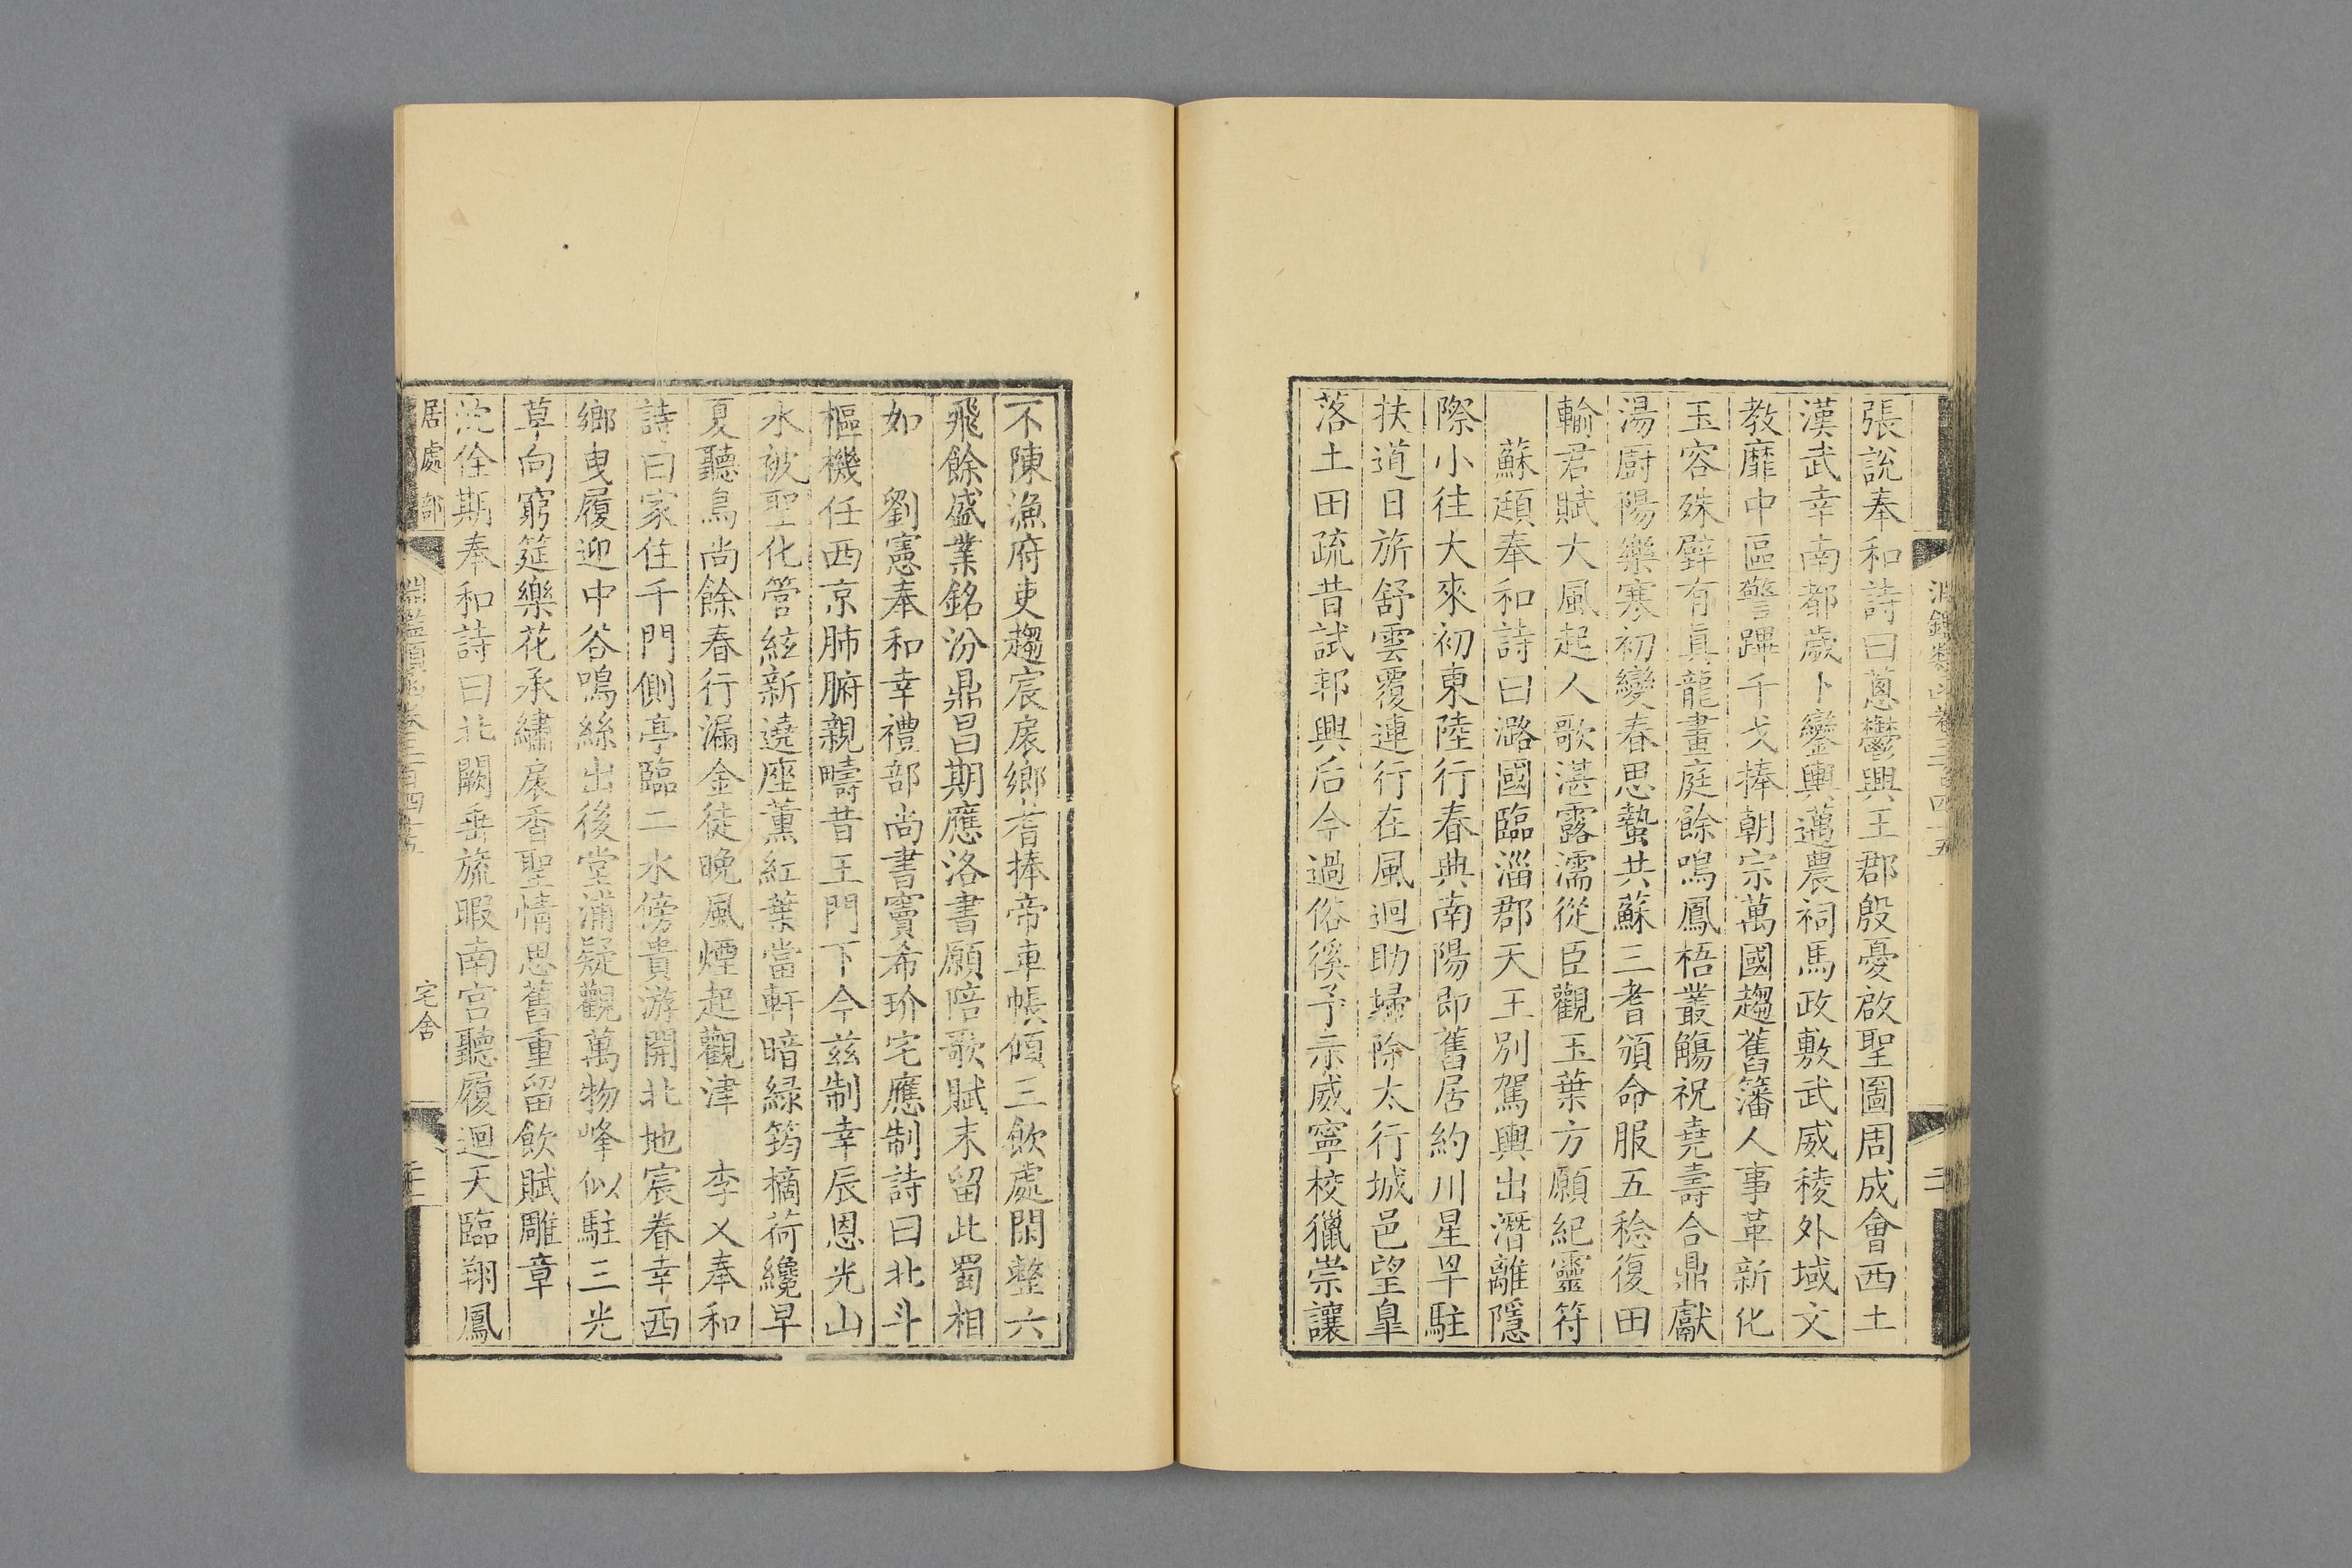 張說奉和詩曰蔥鬱興王郡殷憂啟聖圖周成會西土
漢武幸南都歲卜鑾輿邁農祠馬政敷武威稜外域文
教靡中區警蹕千戈捧朝宗萬國趨舊籓人事革新化
玉容殊壁有真龍畫庭餘鳴鳳梧叢觴祝堯壽合鼎獻
湯廚陽樂寒初變春思蟄共蘇三耆頒命服五稔復田
輸君賦大風起人歌湛露濡從臣觀玉葉方願紀靈符
蘇頲奉和詩曰潞國臨淄郡天王別駕輿出潛離隱
際小往大來初東陸行春典南陽即舊居約川星罕駐
扶道日旂舒雲覆連行在風迴助掃除太行城邑望臯
落土田疏昔試邦興后今過俗徯予示威寧校獵崇讓
不陳漁府吏趨宸扆鄉耆捧帝車帳傾三飲處閑整六
飛餘盛業銘汾鼎昌期應洛書願陪歌賦末留此蜀相
如 劉憲奉和幸禮部尚書竇希玠宅應制詩曰北斗
樞機任西京肺腑親疇昔王門下今茲制幸辰恩光山
水被聖化管絃新遶座薰紅葉當軒暗綠筠摘荷纔早
夏聽鳥尚餘春行漏金徒晚風煙起觀津 李乂奉和
詩曰家住千門側亭臨二水傍貴游開北地宸眷幸西
鄉曳履迎中谷鳴絲出後堂浦疑觀萬物峰似駐三光
草向窮筵樂花承繡扆香聖情思舊重留飲賦雕章
沈佺期奉和詩曰北闕垂旒暇南宮聽履迴天臨翔鳳
居處部 淵鑑類函卷三百四十五 宅舍